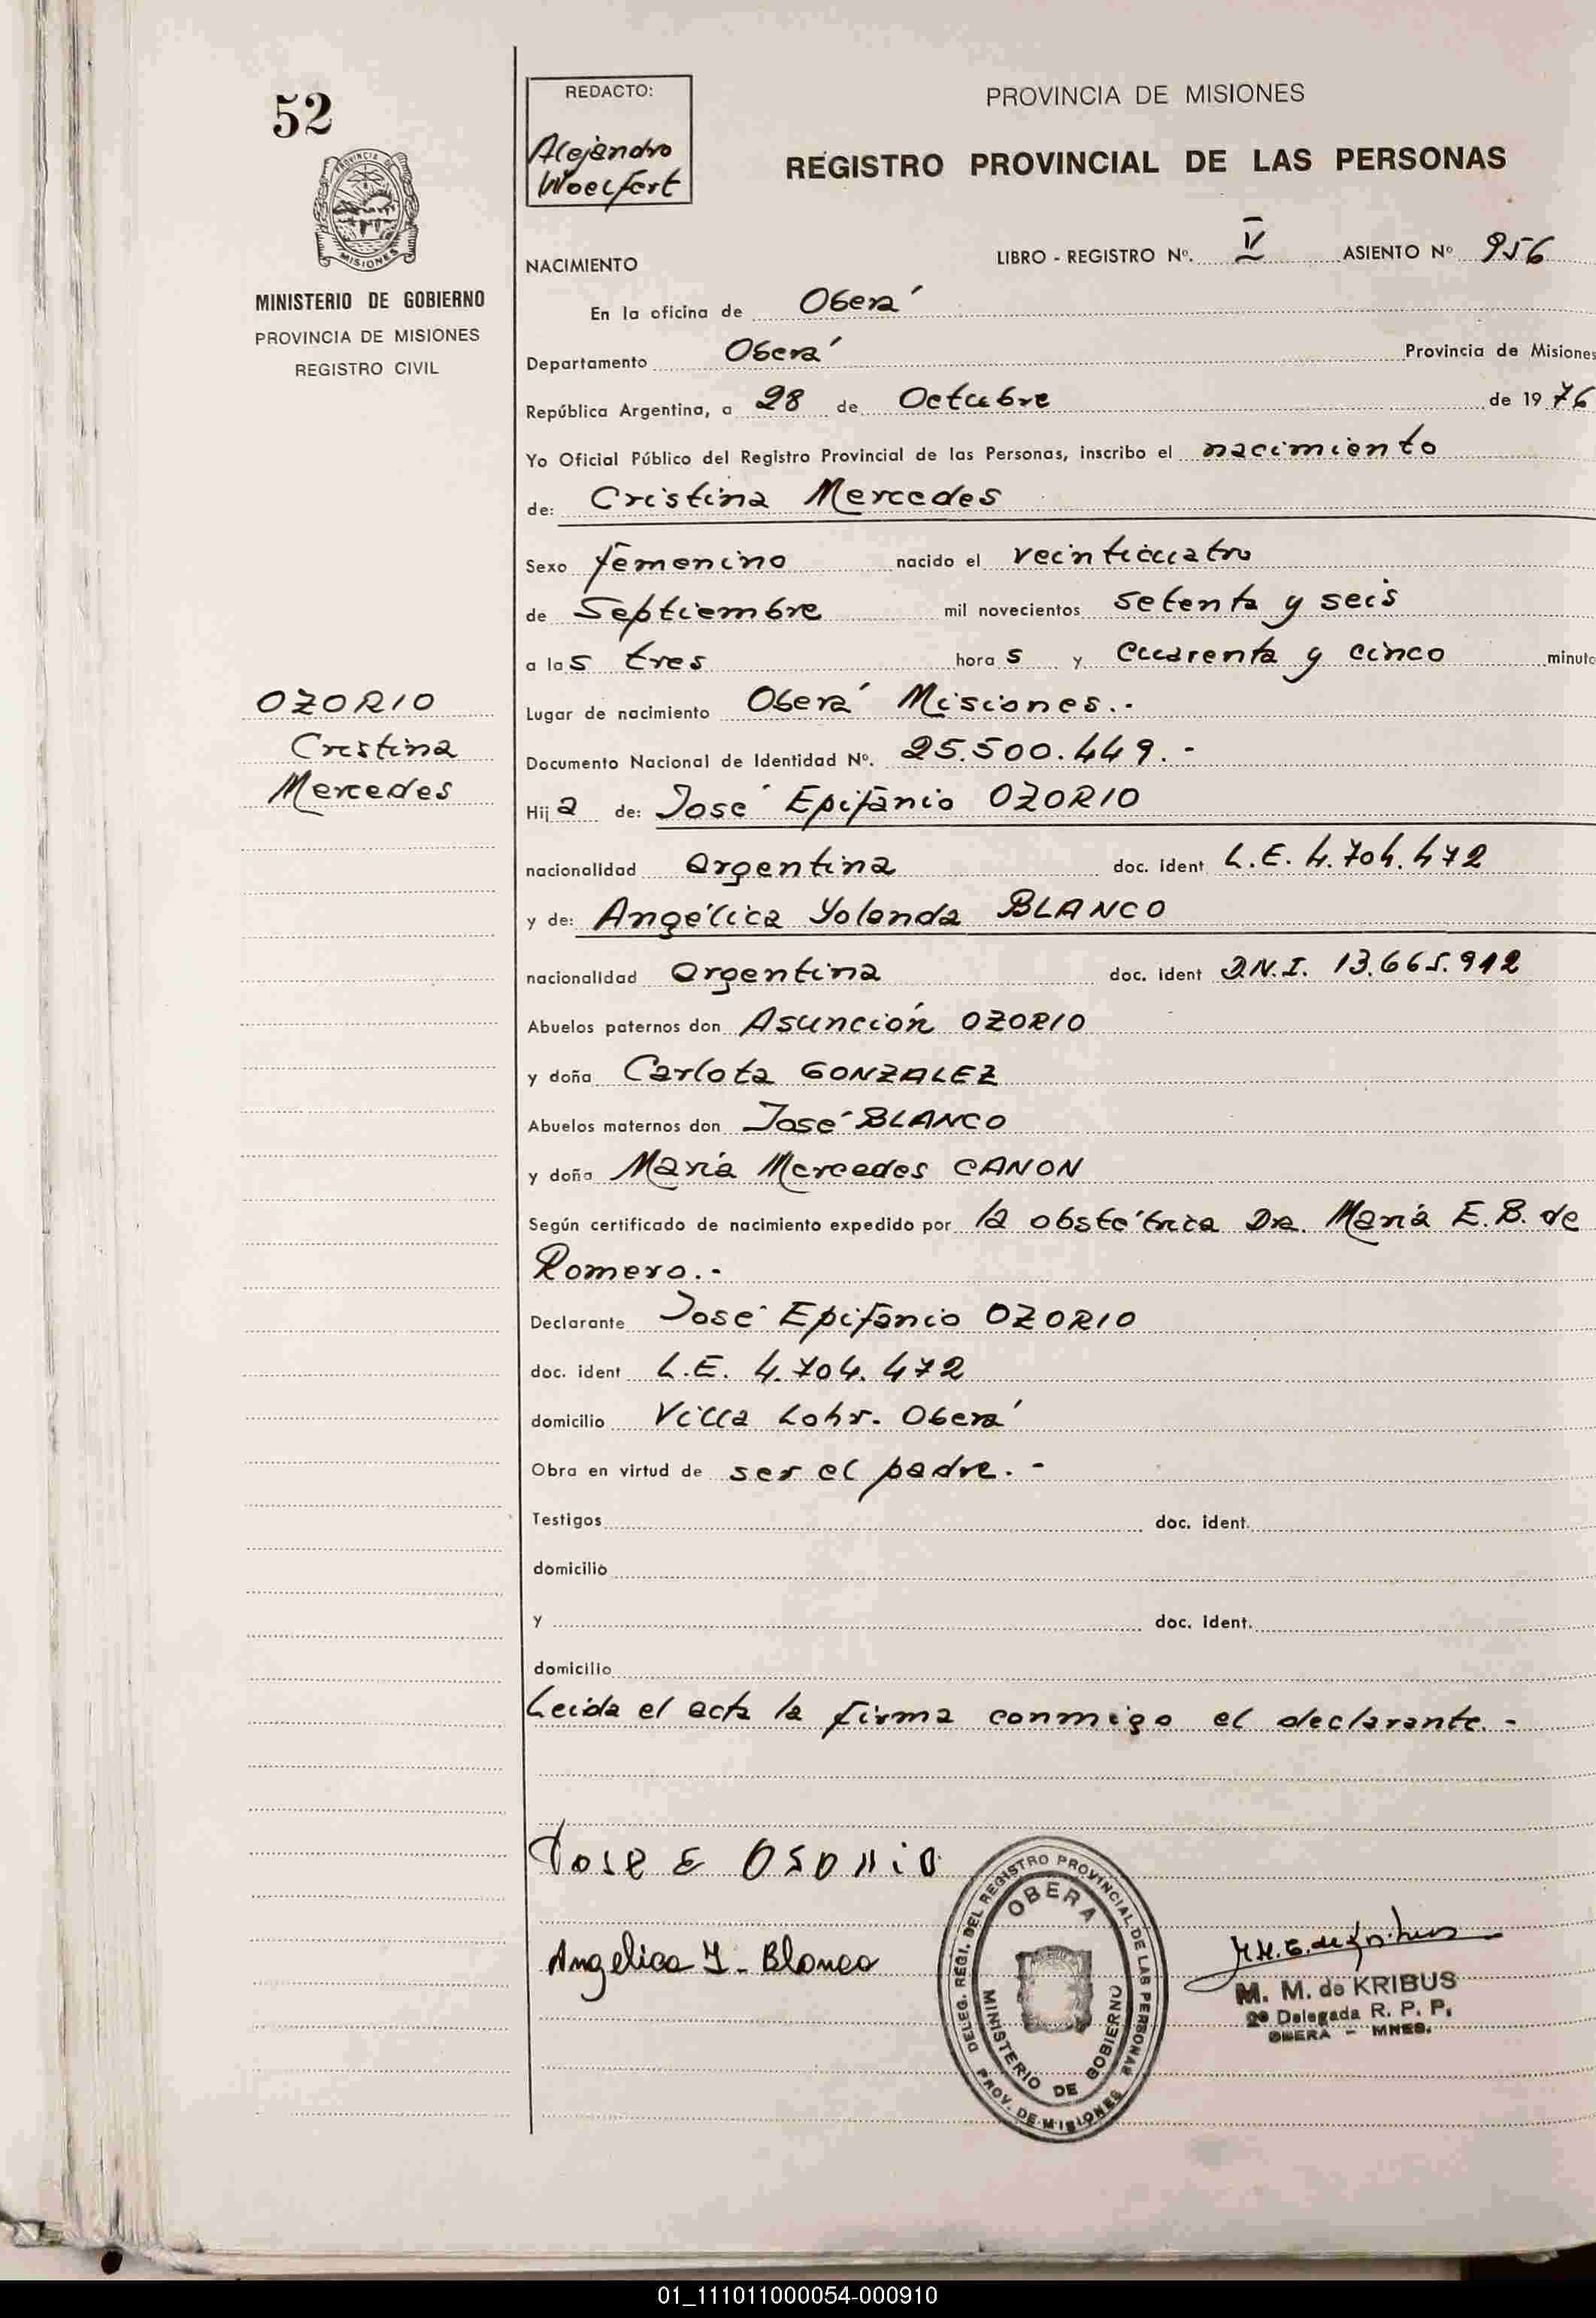 52
PROVINCIA DE
MISIONES
MINISTERIO DE GOBIERNO
PROVINCIA DE MISIONES
REGISTRO CIVIL
OZORIO
Cristina
Mercedes
REDACTO:
Alejandro
Woelfert
PROVINCIA DE MISIONES
REGISTRO PROVINCIAL DE LAS PERSONAS
NACIMIENTO LIBRO - REGISTRO Nº. V ASIENTO Nº 956
En la oficina de Oberá
Departamento Oberá Provincia de Misiones
República Argentina, a 28 de Octubre de 1976
Yo Oficial Público del Registro Provincial de las Personas, inscribo el nacimiento
de: Cristina Mercedes
Sexo femenino nacido el veinticuatro
de Septiembre mil novecientos setenta y seis
a las tres horas y cuarenta y cinco minuto
Lugar de nacimiento Oberá Misiones.-
Documento Nacional de Identidad Nº. 25.500.449.-
Hija de: José Epifanio OZORIO
nacionalidad Argentina doc. ident L.E. 4.704.472
y de: Angélica Yolanda BLANCO
nacionalidad Argentina doc. ident D.N.I. 13.665.912
Abuelos paternos don Asunción OZORIO
y doña Carlota GONZALEZ
Abuelos maternos don José BLANCO
y doña María Mercedes CANON
Según certificado de nacimiento expedido por la obstétrica Da. María E.B. de
Romero.-
Declarante José Epifanio OZORIO
doc. ident L.E. 4.704.472
domicilio Villa Lohr. Oberá
Obra en virtud de ser el padre.-
Testigos doc. ident.
domicilio
y doc. ident.
domicilio
Leida el acta la firma conmigo el declarante.-
Jose E Osorio
Angelica Y. Blanco
DELEG. REGI. DEL REGISTRO PROVINCIAL DE LAS PERSONAS
OBERA
MINISTERIO DE GOBIERNO
PROV. DE MISIONES
M. M. de KRIBUS
2º Delegada R. P. P.
OBERA - MNES.
01_111011000054-000910